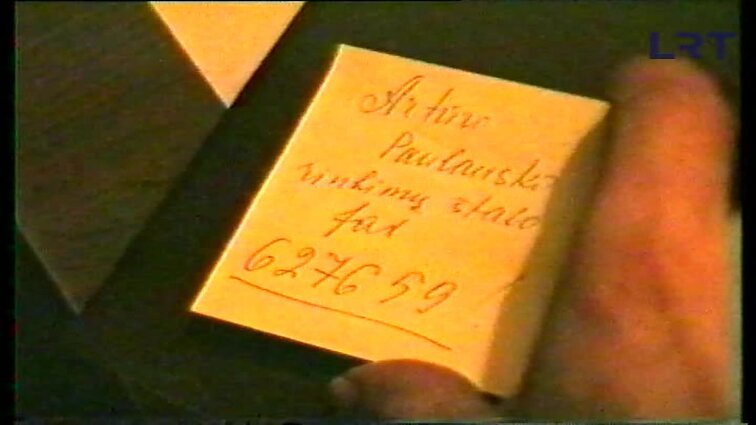 LRT
Artūro
Paulausko
rinkimų štabo
fax
627659